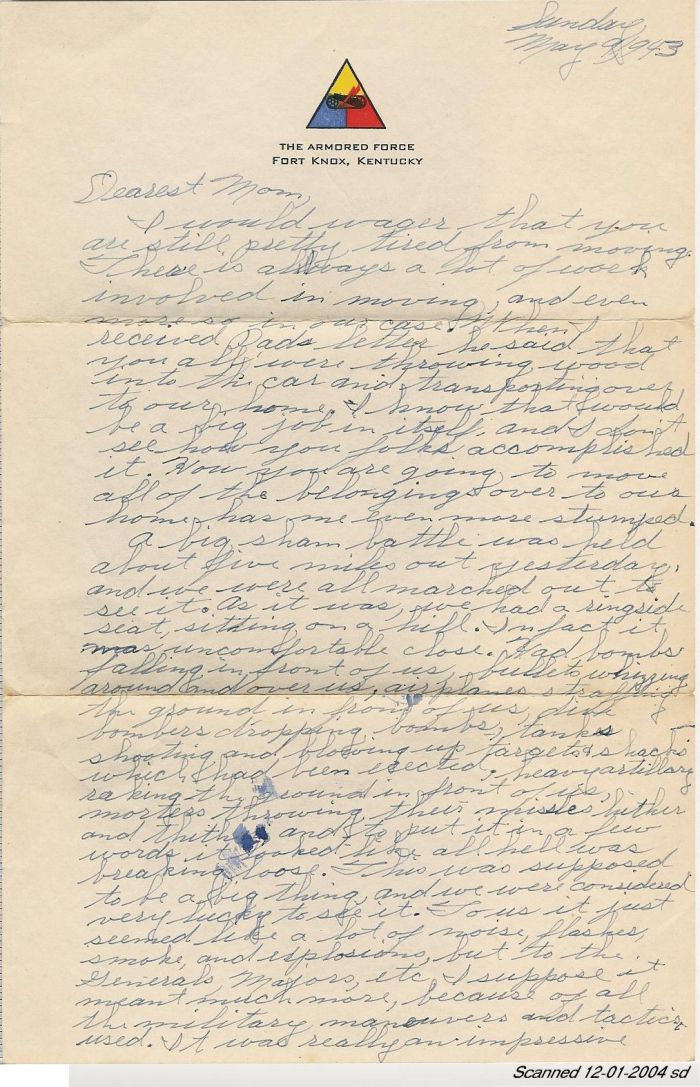 Sunday,
May 9, 1943
THE ARMORED FORCE
FORT KNOX, KENTUCKY
Dearest Mom,
I would wager that you
are still pretty tired from moving.
There is always a lot of work
involved in moving, and even
more so in our case. When I
received Dads letter he said that
you all were throwing wood
into the car and transporting over
to our home. I know that would
be a big job in itself, and I don't
see how you folks accomplished
it. How you are going to move
all of the belongings over to our
home has me even more stumped.
A big sham battle was held
about five miles out yesterday,
and we were all marched out to
see it. As it was, we had a ringside
seat, sitting on a hill. In fact it
was uncomfortable close. Had bombs
falling in front of us, bullets whizzing
around and over us, airplanes straffing
the ground in front of us, dive
bombers dropping bombs, tanks
shooting and blowing up targets & shacks
which had been erected, heavy artillary
raking the ground in front of us,
morters throwing their missles hither
and thither, and to put it in a few
words it looked like all hell was
breaking loose. This was supposed
to be a big thing, and we were considered
very lucky to see it. To us it just
seemed like a lot of noise, flashes,
smoke, and explosions, but to the
Generals, Majors, etc, I suppose it
meant much more, because of all
the military maneuvers and tactics
used. It was really an impressive
Scanned 12-01-2004 sd